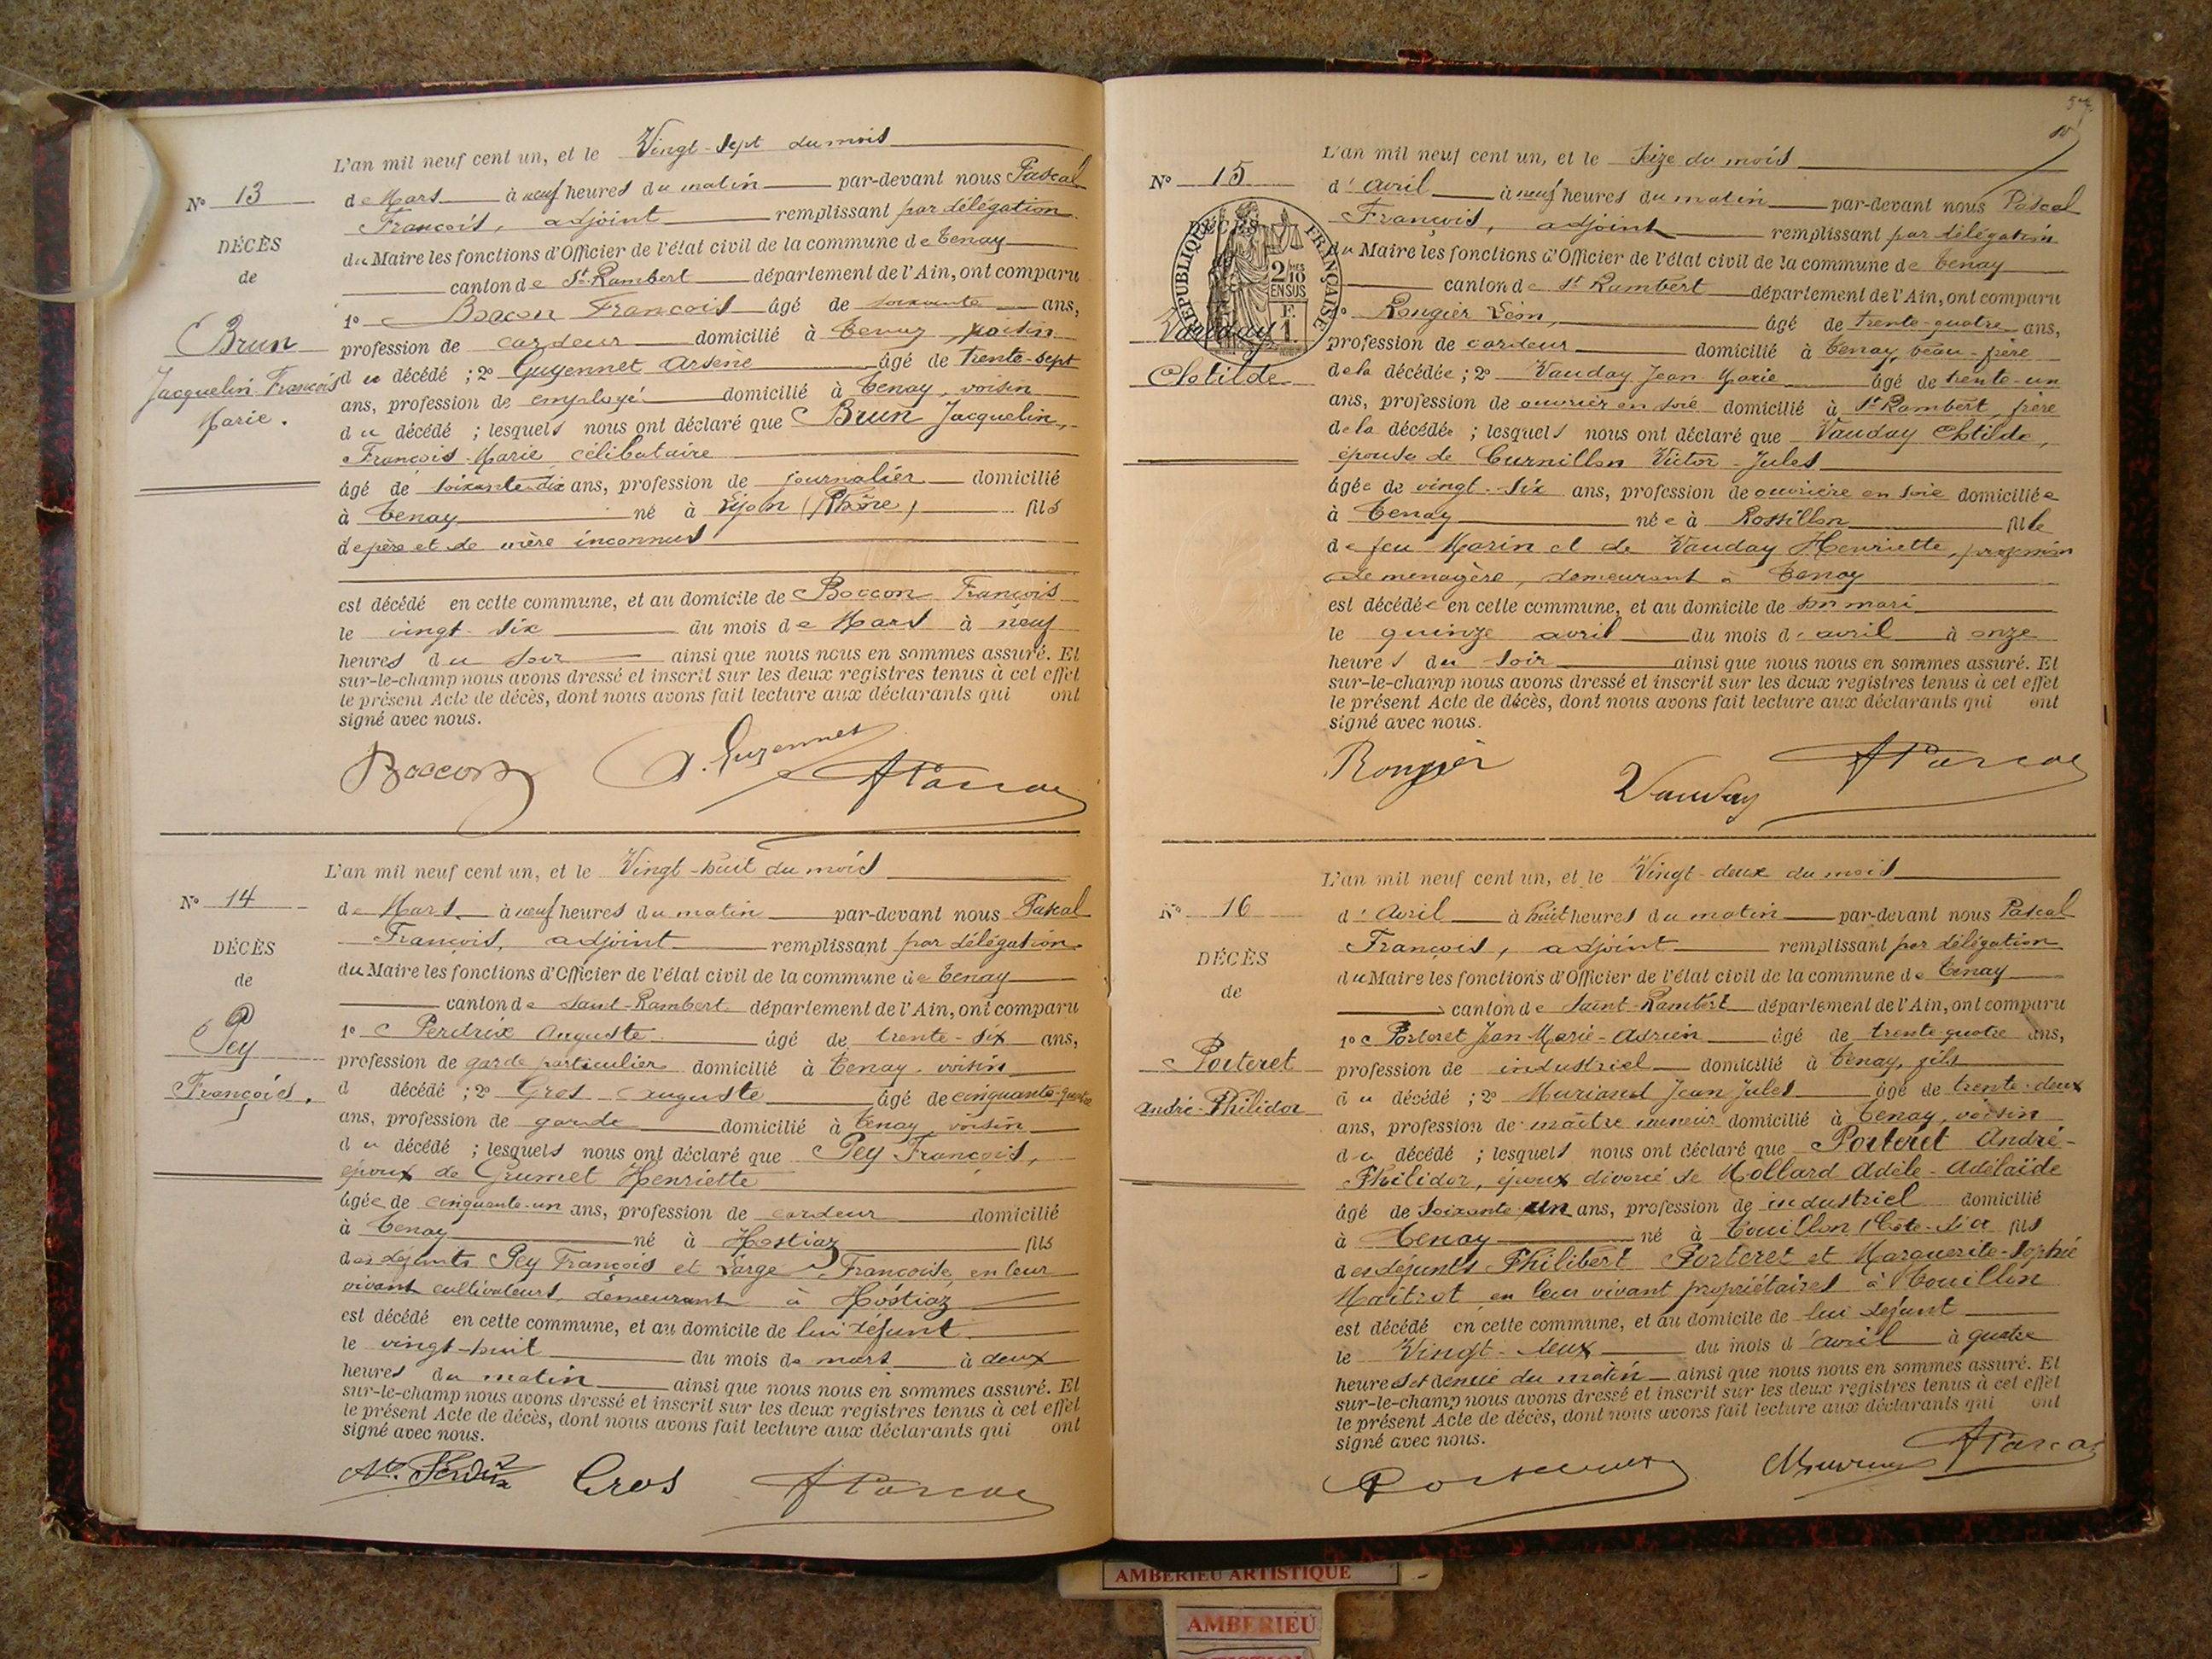 L'an mil neuf cent un, et le Vingt-sept du mois
N° 13
de Mars à neuf heures du matin par-devant nous Pascal
François, adjoint remplissant par délégation
DÉCÈS
du Maire les fonctions d'Officier de l'état civil de la commune de Tenay
de
canton de St Rambert département de l'Ain, ont comparu
1° Boccon François âgé de soixante ans,
Brun
profession de cardeur domicilié à Tenay, voisin
Jacquelin François
du décédé ; 2° Guyennet Arsène âgé de trente-sept
Marie.
ans, profession de employé domicilié à Tenay, voisin
du décédé ; lesquels nous ont déclaré que Brun Jacquelin,
François-Marie, célibataire
âgé de soixante-dix ans, profession de journalier domicilié
à Tenay né à Lyon (Rhône) fils
de père et de mère inconnus
est décédé en cette commune, et au domicile de Boccon François
le vingt-six du mois de Mars à neuf
heures du soir ainsi que nous nous en sommes assuré. Et
sur-le-champ nous avons dressé et inscrit sur les deux registres tenus à cet effet
le présent Acte de décès, dont nous avons fait lecture aux déclarants qui ont
signé avec nous.
Boccon A. Guyennet
L'an mil neuf cent un, et le Vingt-huit du mois
N° 14
de Mars à neuf heures du matin par-devant nous Pascal
François, adjoint remplissant par délégation
DÉCÈS
du Maire les fonctions d'Officier de l'état civil de la commune de Tenay
de
canton de Saint-Rambert département de l'Ain, ont comparu
Pey
1° Perdrix Auguste âgé de trente-six ans,
profession de garde particulier domicilié à Tenay, voisin
François.
d décédé ; 2° Gros Auguste âgé de cinquante-quatre
ans, profession de garde domicilié à Tenay, voisin
du décédé ; lesquels nous ont déclaré que Pey François,
époux de Grumet Henriette
âgée de cinquante-un ans, profession de cardeur domicilié
à Tenay né à Hostiaz fils
des défunts Pey François et Large Françoise, en leur
vivant cultivateurs, demeurant à Hostiaz
est décédé en cette commune, et au domicile de lui défunt
le vingt-huit du mois de mars à deux
heures du matin ainsi que nous nous en sommes assuré. Et
sur-le-champ nous avons dressé et inscrit sur les deux registres tenus à cet effet
le présent Acte de décès, dont nous avons fait lecture aux déclarants qui ont
signé avec nous.
Perdrix Gros
L'an mil neuf cent un, et le Seize du mois
N° 15
d'avril à neuf heures du matin par-devant nous Pascal
François, adjoint remplissant par délégation
DÉCÈS
RÉPUBLIQUE FRANÇAISE
2/10 EN SUS
F. 1.
du Maire les fonctions d'Officier de l'état civil de la commune de Tenay
canton de St Rambert département de l'Ain, ont comparu
Vauday
1° Rougier Léon, âgé de trente-quatre ans,
profession de cardeur domicilié à Tenay, beau-frère
Clotilde
de la décédée ; 2° Vauday Jean Marie âgé de trente-un
ans, profession de ouvrier en soie domicilié à St Rambert, frère
de la décédée ; lesquels nous ont déclaré que Vauday Clotilde,
épouse de Curnillon Victor-Jules
âgée de vingt-six ans, profession de ouvrière en soie domiciliée
à Tenay née à Rossillon fille
de feu Marin et de Vauday Henriette, profession
de menagère, demeurant à Tenay
est décédée en cette commune, et au domicile de son mari
le quinze avril du mois d'avril à onze
heures du soir ainsi que nous nous en sommes assuré. Et
sur-le-champ nous avons dressé et inscrit sur les deux registres tenus à cet effet
le présent Acte de décès, dont nous avons fait lecture aux déclarants qui ont
signé avec nous.
Rougier Vauday
L'an mil neuf cent un, et le Vingt-deux du mois
N° 16
d'Avril à huit heures du matin par-devant nous Pascal
François, adjoint remplissant par délégation
DÉCÈS
du Maire les fonctions d'Officier de l'état civil de la commune de Tenay
de
canton de Saint-Rambert département de l'Ain, ont comparu
1° Porteret Jean-Marie-Adrien âgé de trente-quatre ans,
Porteret
profession de industriel domicilié à Tenay, fils
André-Philidor
du décédé ; 2° Muriand Jean Jules âgé de trente-deux
ans, profession de maître mineur domicilié à Tenay, voisin
du décédé ; lesquels nous ont déclaré que Porteret André-
Philidor, époux divorcé de Mollard Adèle-Adélaïde
âgé de soixante-un ans, profession de industriel domicilié
à Tenay né à Touillon (Côte-d'or fils
des défunts Philibert Porteret et Marguerite-Sophie
Maitrot, en leur vivant propriétaires à Touillon
est décédé en cette commune, et au domicile de lui défunt
le Vingt-deux du mois d'avril à quatre
heures et demie du matin ainsi que nous nous en sommes assuré. Et
sur-le-champ nous avons dressé et inscrit sur les deux registres tenus à cet effet
le présent Acte de décès, dont nous avons fait lecture aux déclarants qui ont
signé avec nous.
AMBERIEU ARTISTIQUE
AMBERIEU